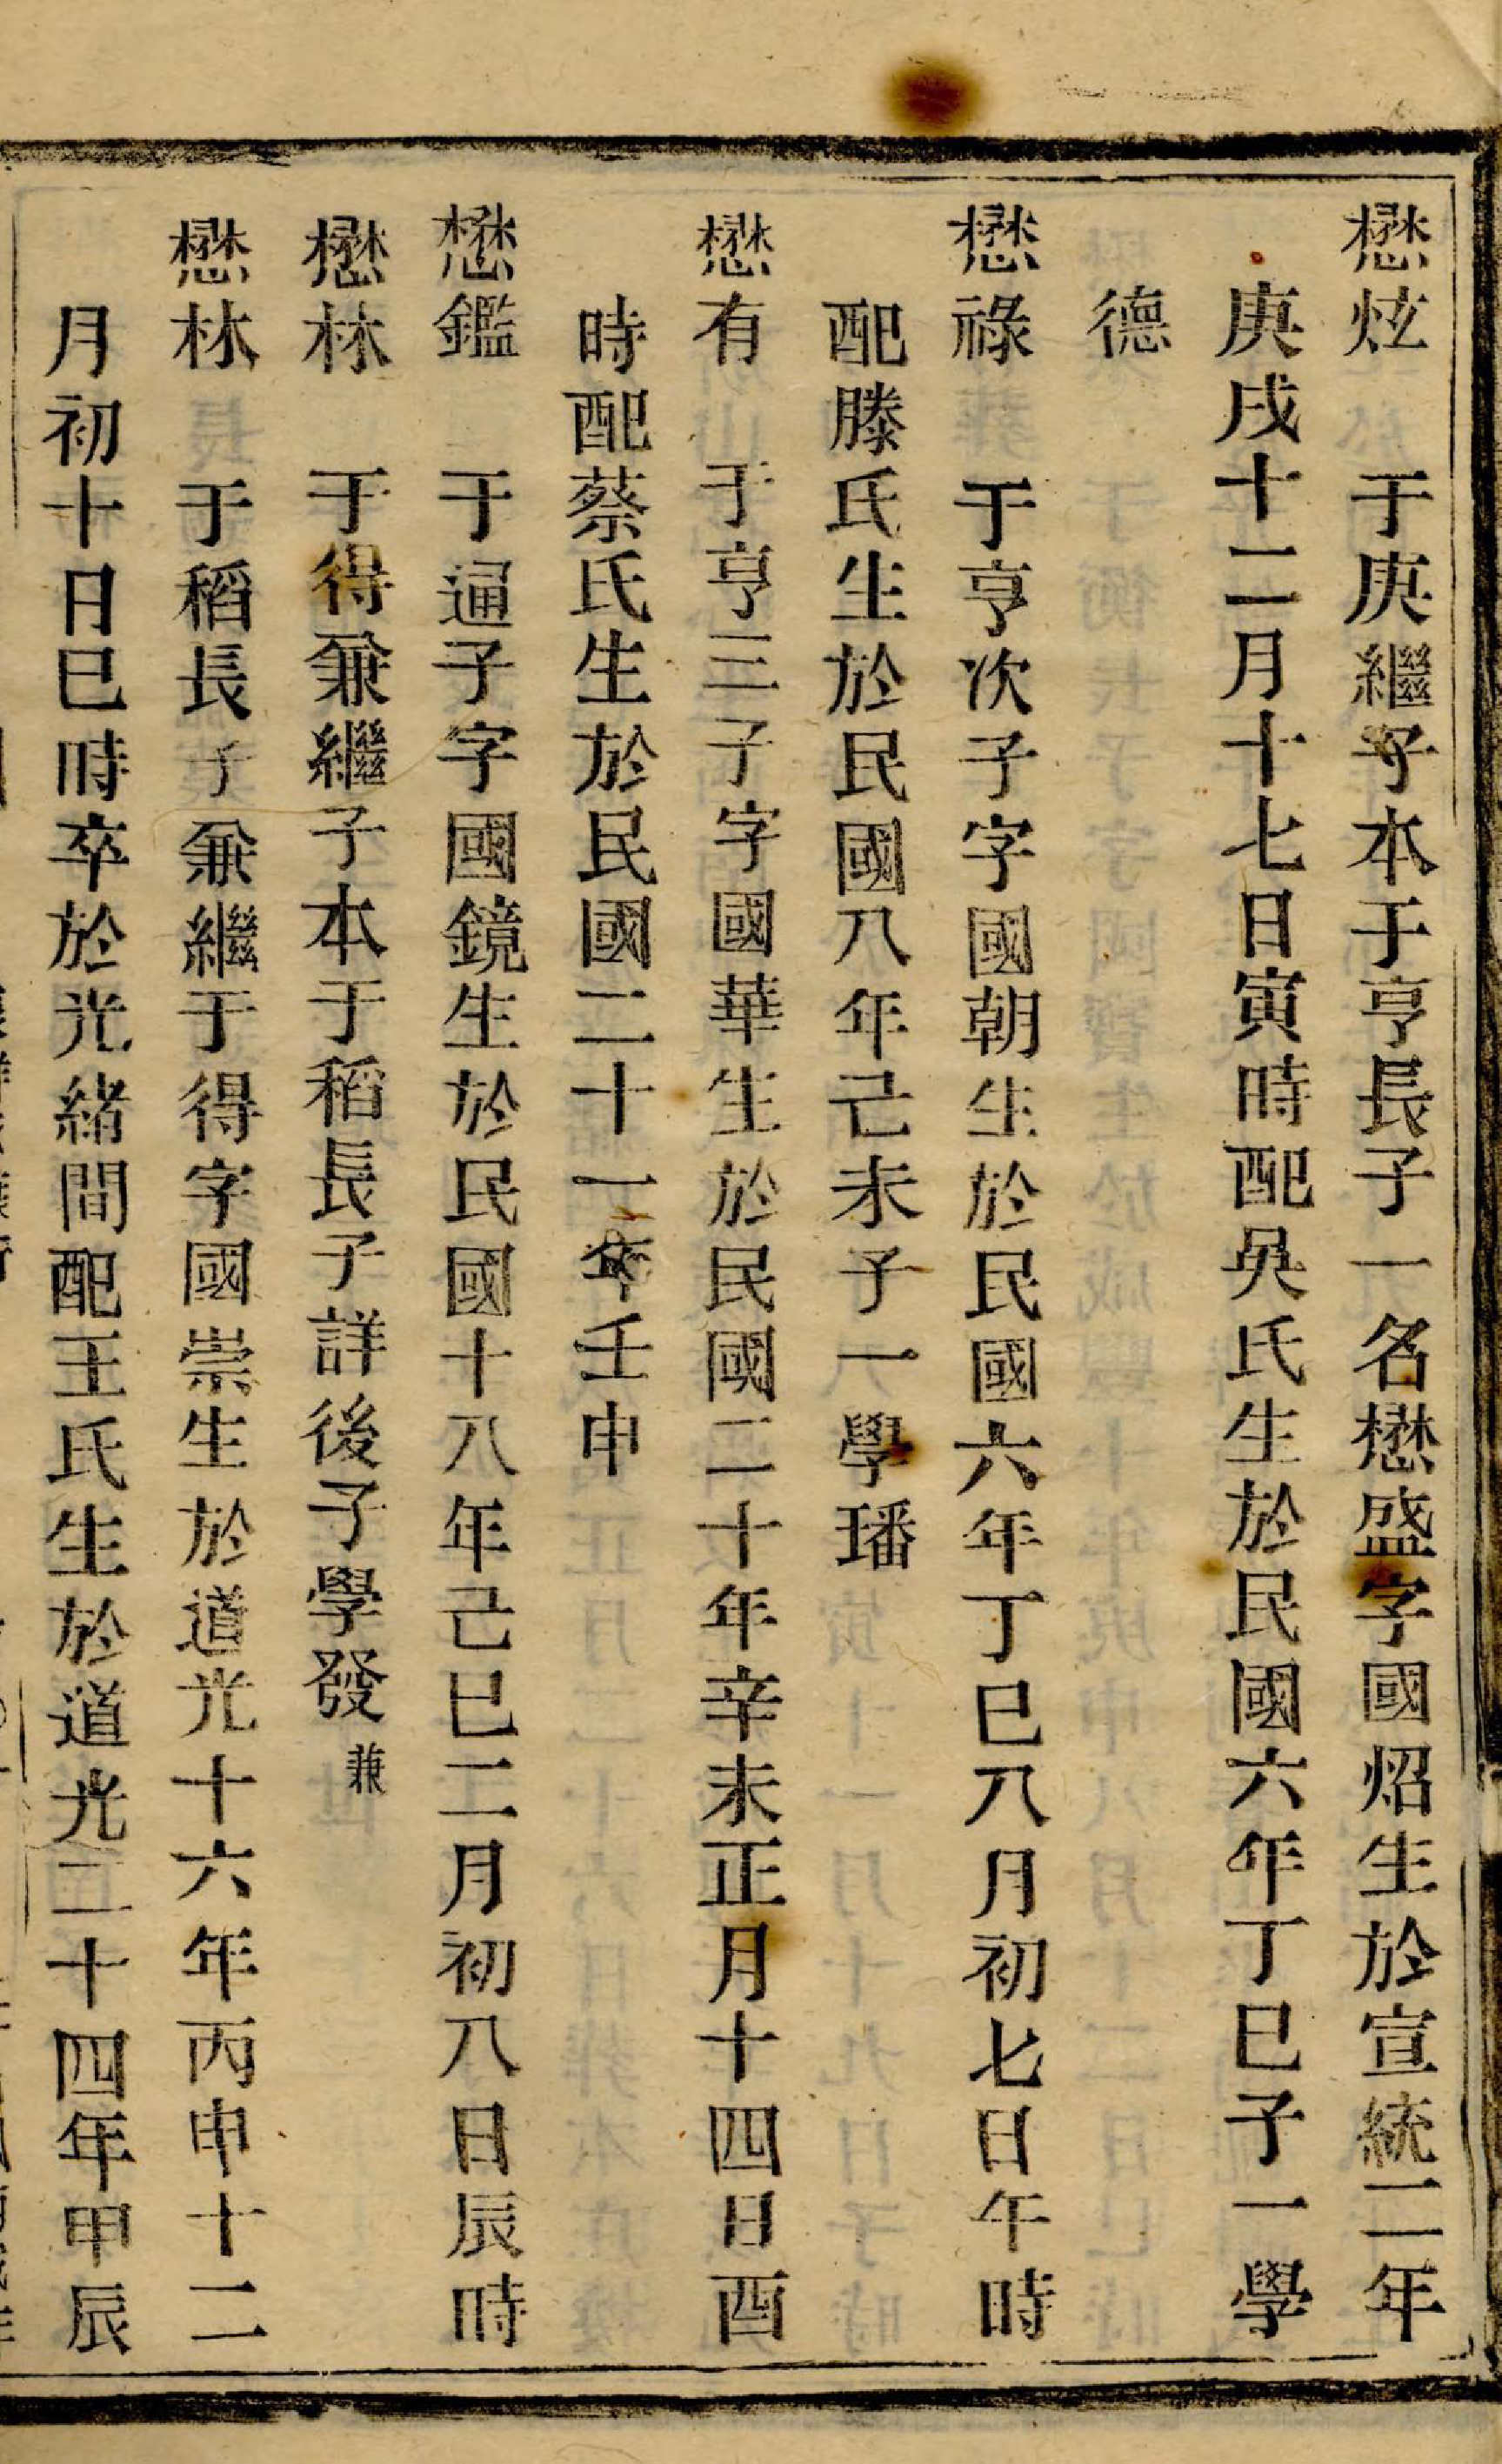 懋炫 于庚繼子本于亨長子一名懋盛字國炤生於宣統二年
庚戌十二月十七日寅時配吳氏生於民國六年丁巳子一學
德
懋祿 于亨次子字國朝生於民國六年丁巳八月初七日午時
配滕氏生於民國八年己未子一學璠
懋有 于亨三子字國華生於民國二十年辛未正月十四日酉
時配蔡氏生於民國二十一年壬申
懋鑑 于逼子字國鏡生於民國十八年己巳二月初八日辰時
懋林 于得兼繼子本于稻長子詳後子學發兼
懋林 于稻長子兼繼于得字國崇生於道光十六年丙申十二
月初十日巳時卒於光緒間配王氏生於道光二十四年甲辰